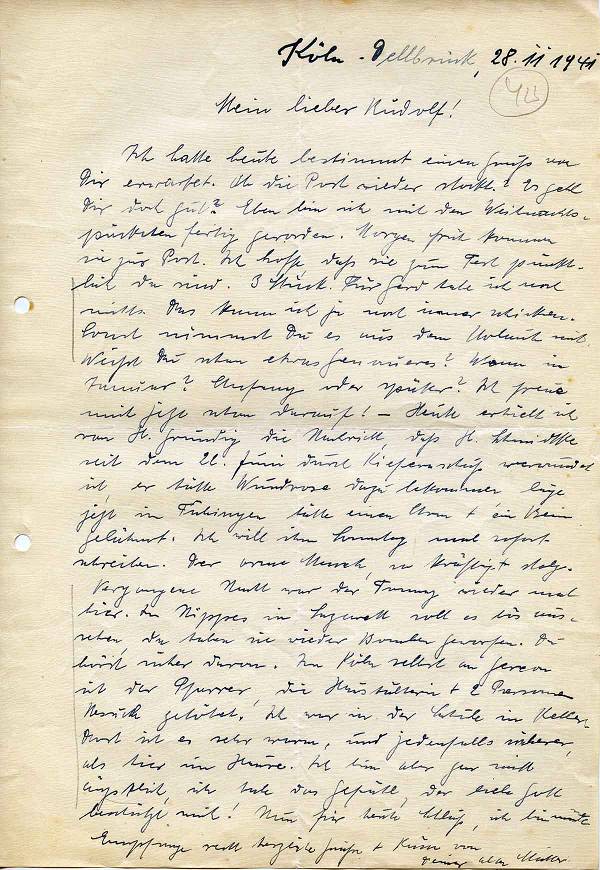 Köln-Dellbrück, 28.11.1941
42
Mein lieber Rudolf!
Ich hatte heute bestimmt einen Gruß von
Dir erwartet. Ob die Post wieder stockt? Es geht
Dir doch gut? Eben bin ich mit den Weihnachts-
päcketen fertig geworden. Morgen früh kommen
sie zur Post. Ich hoffe daß sie zum Fest pünkt-
lich da sind. 3 Stück. Für Gerd habe ich noch
nichts. Das kann ich ja noch immer schicken.
Sonst nimmst Du es aus dem Urlaub mit.
Weißt Du schon etwas genaueres? Wann im
Januar? Anfang oder später? Ich freue
mich jetzt schon darauf! – Heute erhielt ich
von H. Grundig die Nachricht, daß H. Schmidtke
seit dem 22. Juni durch Kieferschuß verwundet
ist, er hätte Wundrose dazu bekommen läge
jetzt in Tübingen hätte einen Arm + ein Bein
gelähmt. Ich will ihm Sonntag mal sofort
schreiben. Der arme Mensch, so kräftig + stolz.
Vergangene Nacht war der Tommy wieder mal
hier. In Nippes in Longerich soll es bös aus-
sehen, da haben sie wieder Bomben geworfen. Du
hörst sicher davon. In Köln selbst an Gereon
ist der Pfarrer, die Haushälterin + 2 Personen
Besuch getötet. Ich war in der Schule im Keller.
Dort ist es sehr warm, und jedenfalls sicherer,
als hier im Hause. Ich bin aber gar nicht
ängstlich, ich habe das Gefühl, der liebe Gott
beschützt mich! Nun für heute Schluß, ich bin müde
Empfange recht herzliche Grüße + Küsse von
Deiner alten Mutter